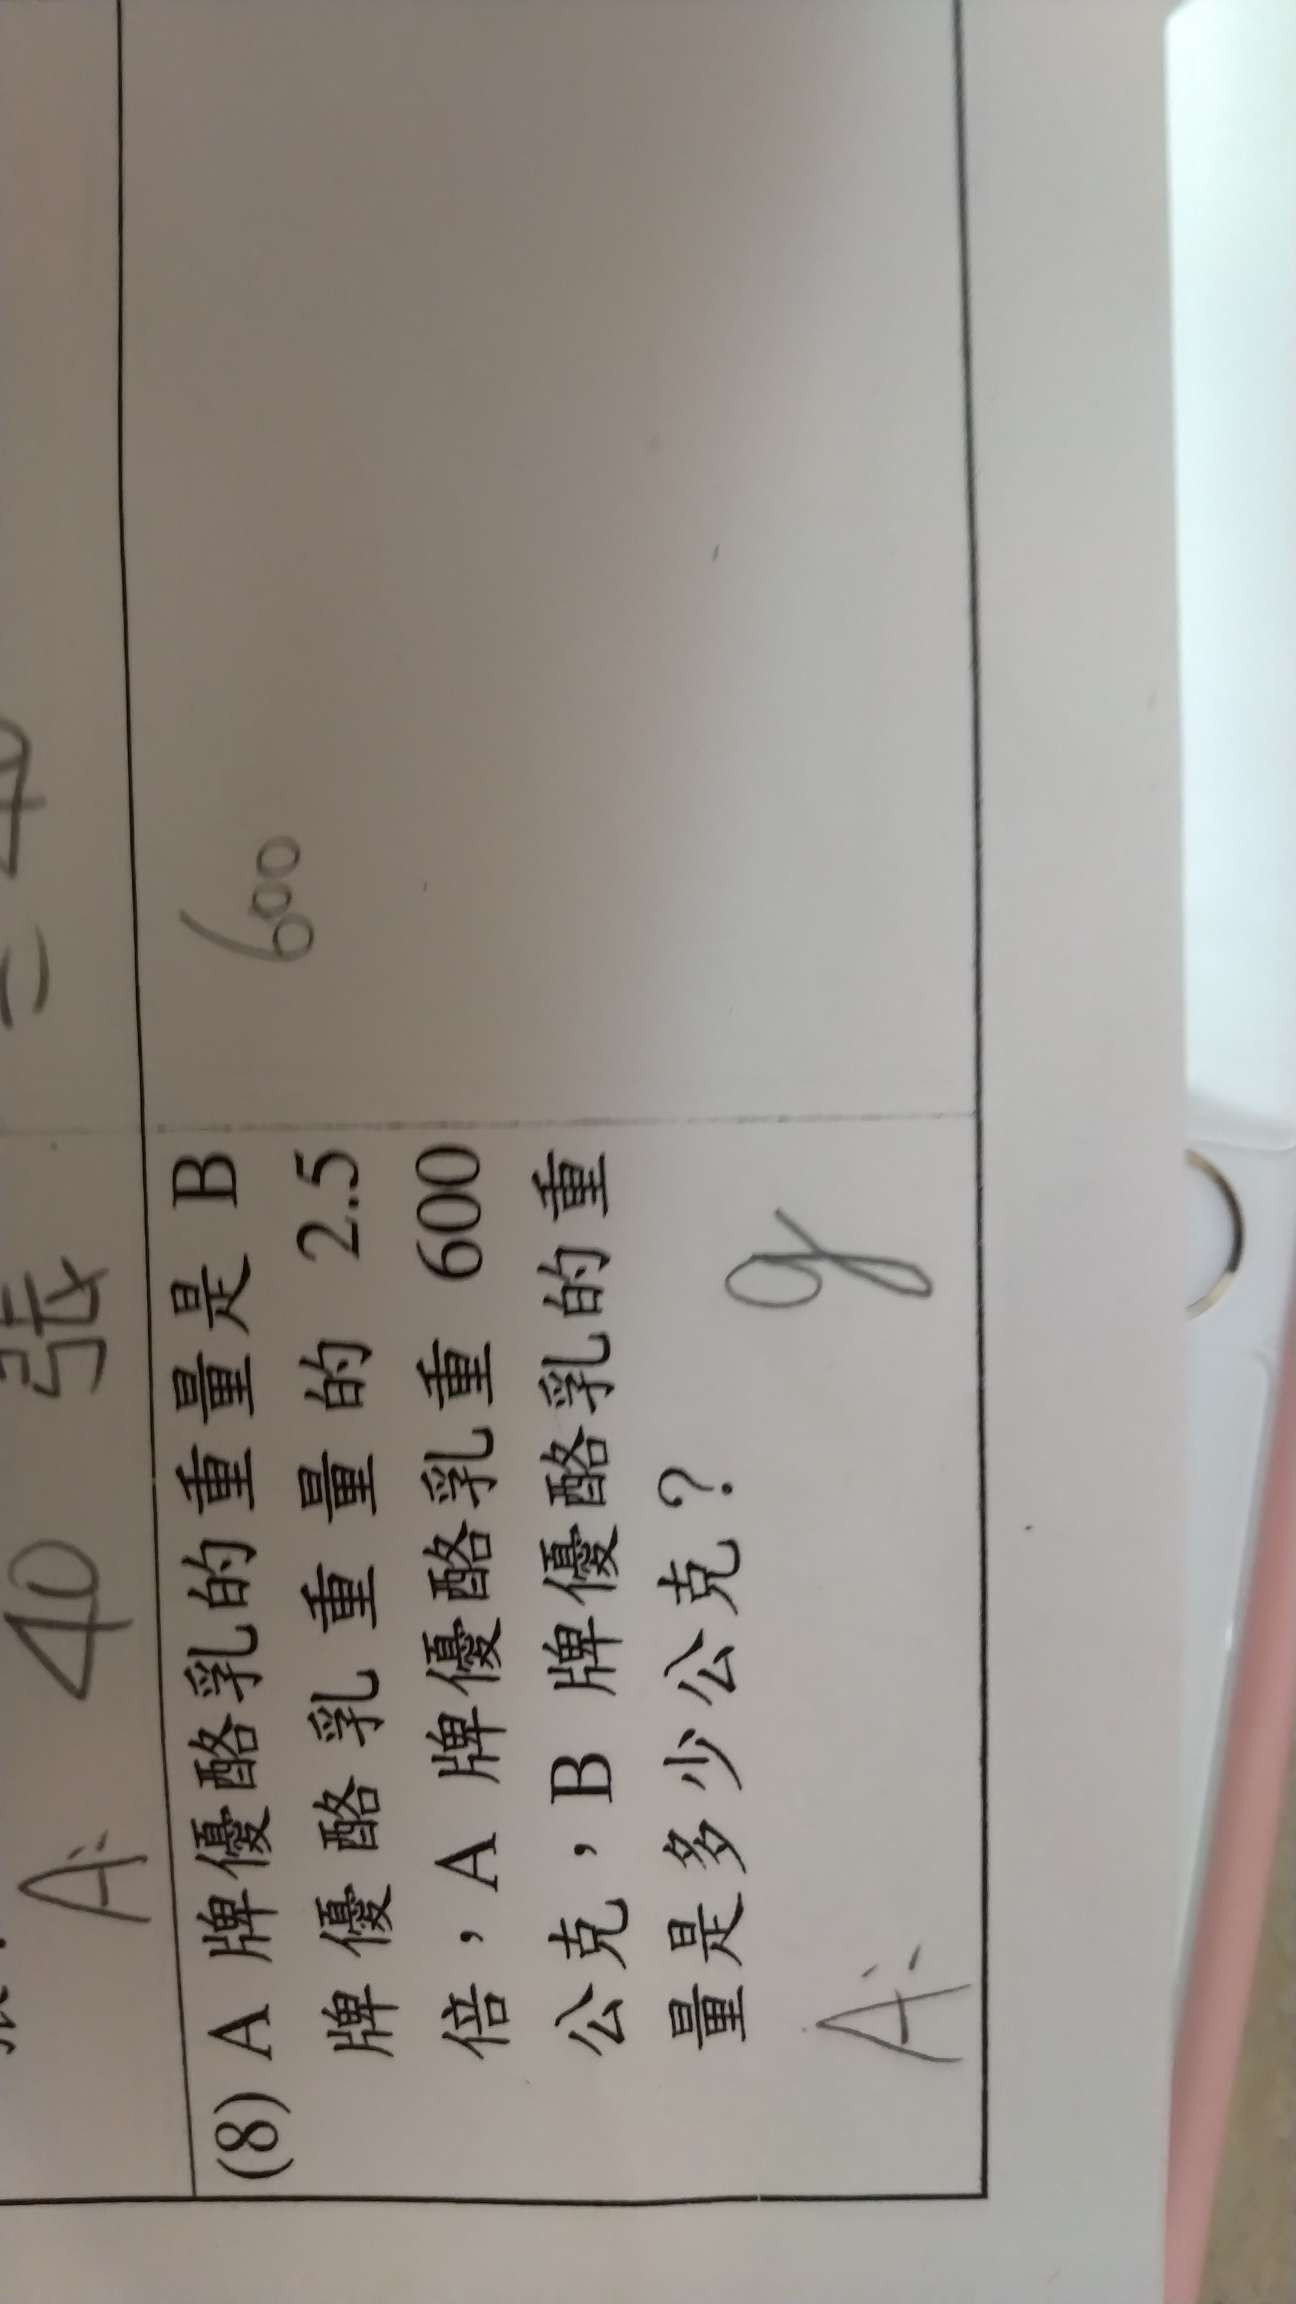 A: 40 張
(8) A 牌優酪乳的重量是 B
牌優酪乳重量的 2.5
倍，A 牌優酪乳重 600
公克，B 牌優酪乳的重
量是多少公克？
A: g
600